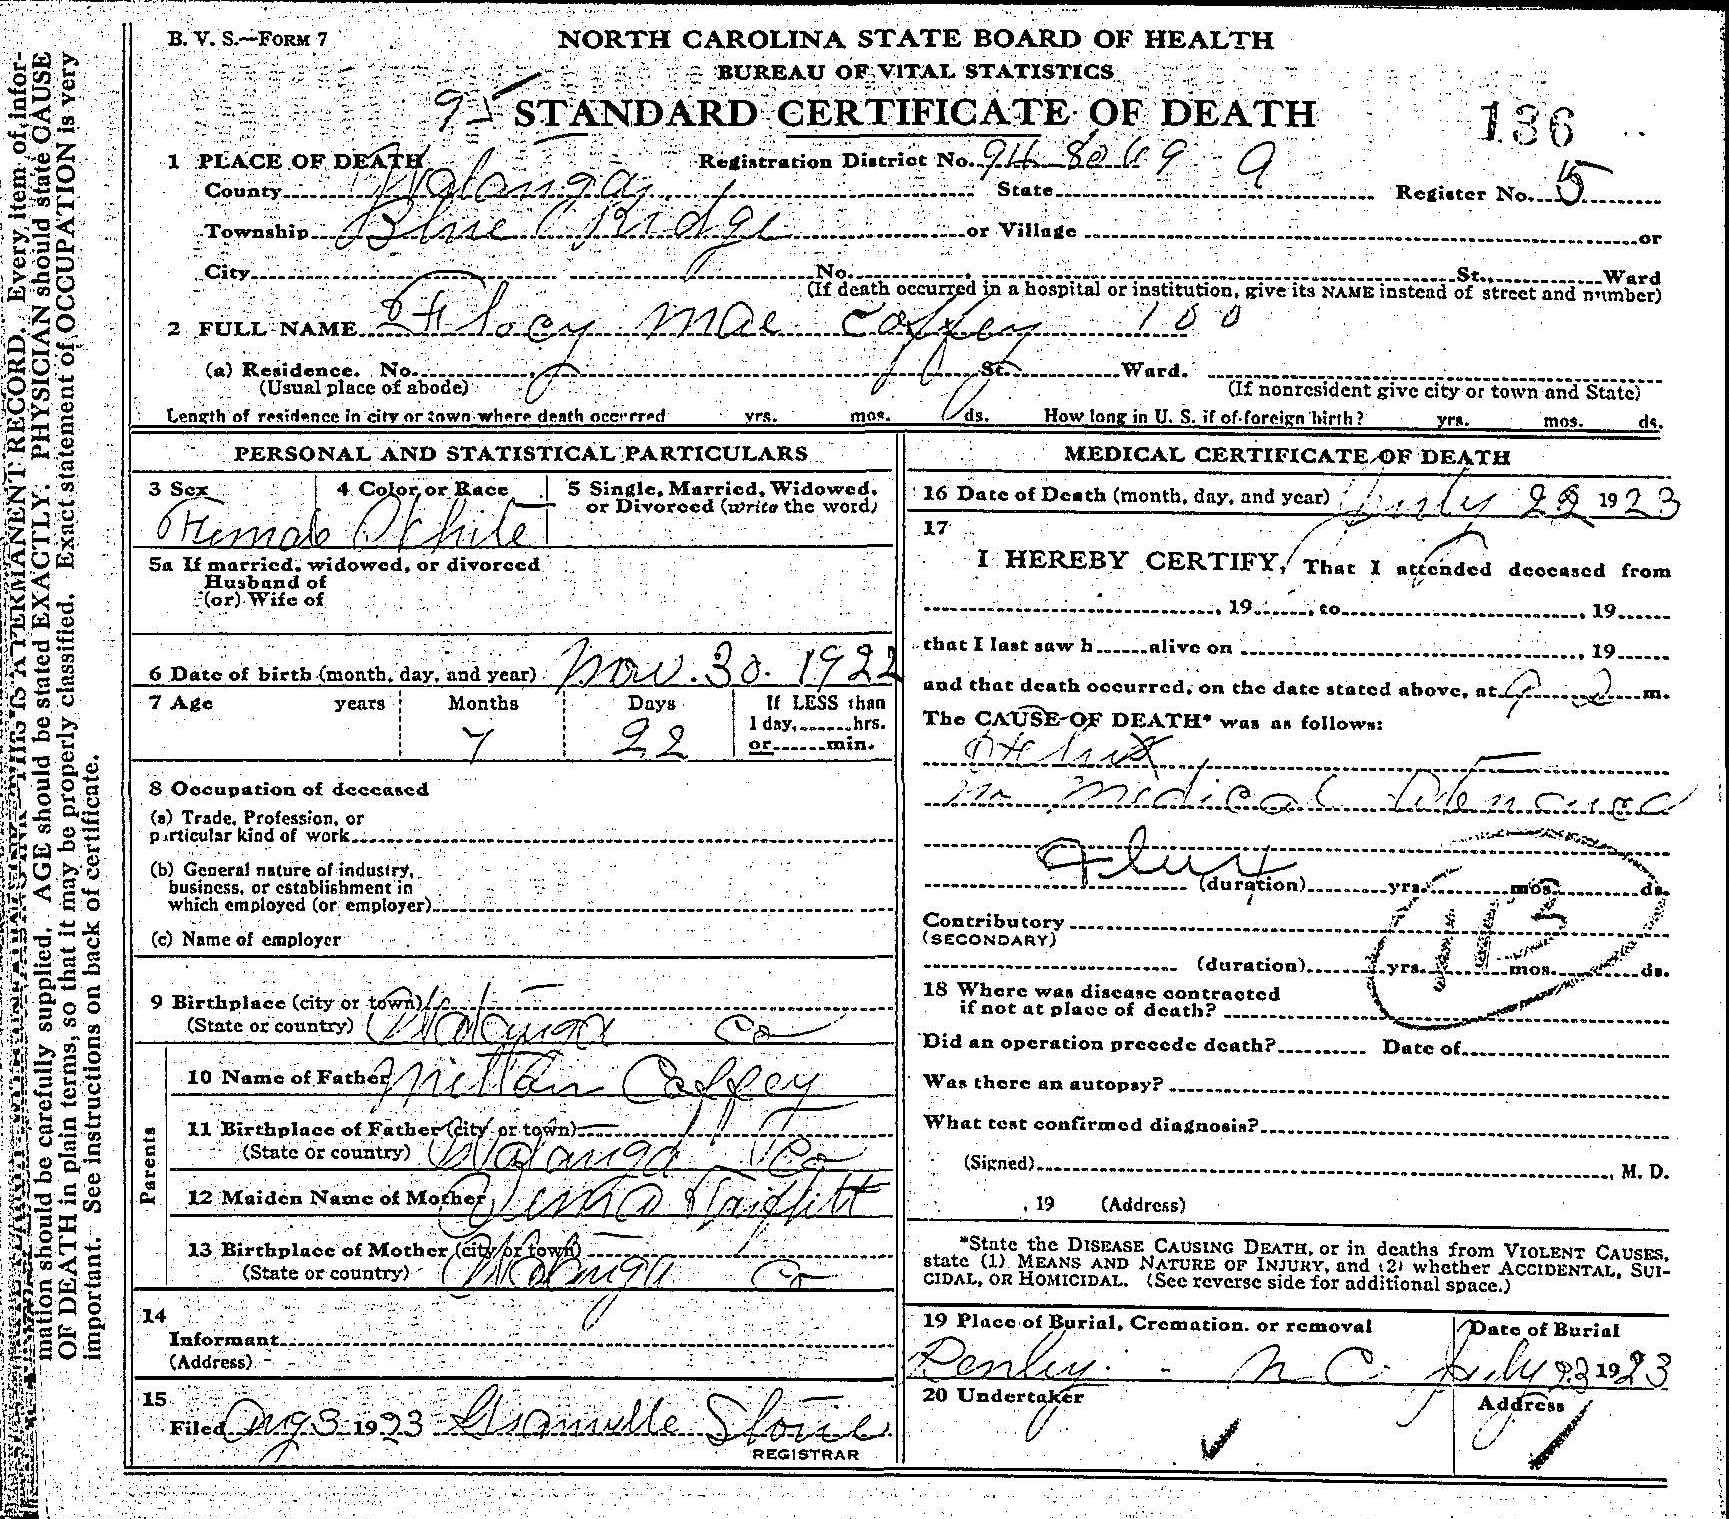 B. V. S.—FORM 7
NORTH CAROLINA STATE BOARD OF HEALTH
BUREAU OF VITAL STATISTICS
95
STANDARD CERTIFICATE OF DEATH
136
1 PLACE OF DEATH
Registration District No. 9
County Watauga State Register No. 5
Township Blue Ridge or Village or
City No. St., Ward
(If death occurred in a hospital or institution, give its NAME instead of street and number)
2 FULL NAME Mae Coffey 100
(a) Residence. No. St. Ward.
(Usual place of abode) (If nonresident give city or town and State)
Length of residence in city or town where death occurred yrs. mos. ds. How long in U. S. if of foreign birth? yrs. mos. ds.
PERSONAL AND STATISTICAL PARTICULARS
3 Sex 4 Color or Race 5 Single, Married, Widowed, or Divorced (write the word)
Female White
5a If married, widowed, or divorced
Husband of
(or) Wife of
6 Date of birth (month, day, and year) Nov. 30. 1922
7 Age years Months Days If LESS than
1 day, hrs.
7 22 or min.
8 Occupation of deceased
(a) Trade, Profession, or
particular kind of work
(b) General nature of industry,
business, or establishment in
which employed (or employer)
(c) Name of employer
9 Birthplace (city or town)
(State or country) Watauga Co
Parents
10 Name of Father Milton Coffey
11 Birthplace of Father (city or town)
(State or country) Watauga Co
12 Maiden Name of Mother
13 Birthplace of Mother (city or town)
(State or country) Watauga Co
14
Informant
(Address)
15
Filed Aug 3 1923 Granville Storie
REGISTRAR
MEDICAL CERTIFICATE OF DEATH
16 Date of Death (month, day, and year) July 22 1923
17
I HEREBY CERTIFY, That I attended deceased from
, 19 , to , 19
that I last saw h alive on , 19
and that death occurred, on the date stated above, at m.
The CAUSE OF DEATH* was as follows:
Flux
no Medical
Flux
(duration) yrs. mos. ds.
Contributory
(SECONDARY)
113
(duration) yrs. mos. ds.
18 Where was disease contracted
if not at place of death?
Did an operation precede death? Date of
Was there an autopsy?
What test confirmed diagnosis?
(Signed) , M. D.
, 19 (Address)
*State the DISEASE CAUSING DEATH, or in deaths from VIOLENT CAUSES,
state (1) MEANS AND NATURE OF INJURY, and (2) whether ACCIDENTAL, SUI-
CIDAL, OR HOMICIDAL. (See reverse side for additional space.)
19 Place of Burial, Cremation, or removal Date of Burial
N C. July 23 1923
20 Undertaker Address
RECORD. Every item of infor-
mation should be carefully supplied. AGE should be stated EXACTLY. PHYSICIAN should state CAUSE
OF DEATH in plain terms, so that it may be properly classified. Exact statement of OCCUPATION is very
important. See instructions on back of certificate.